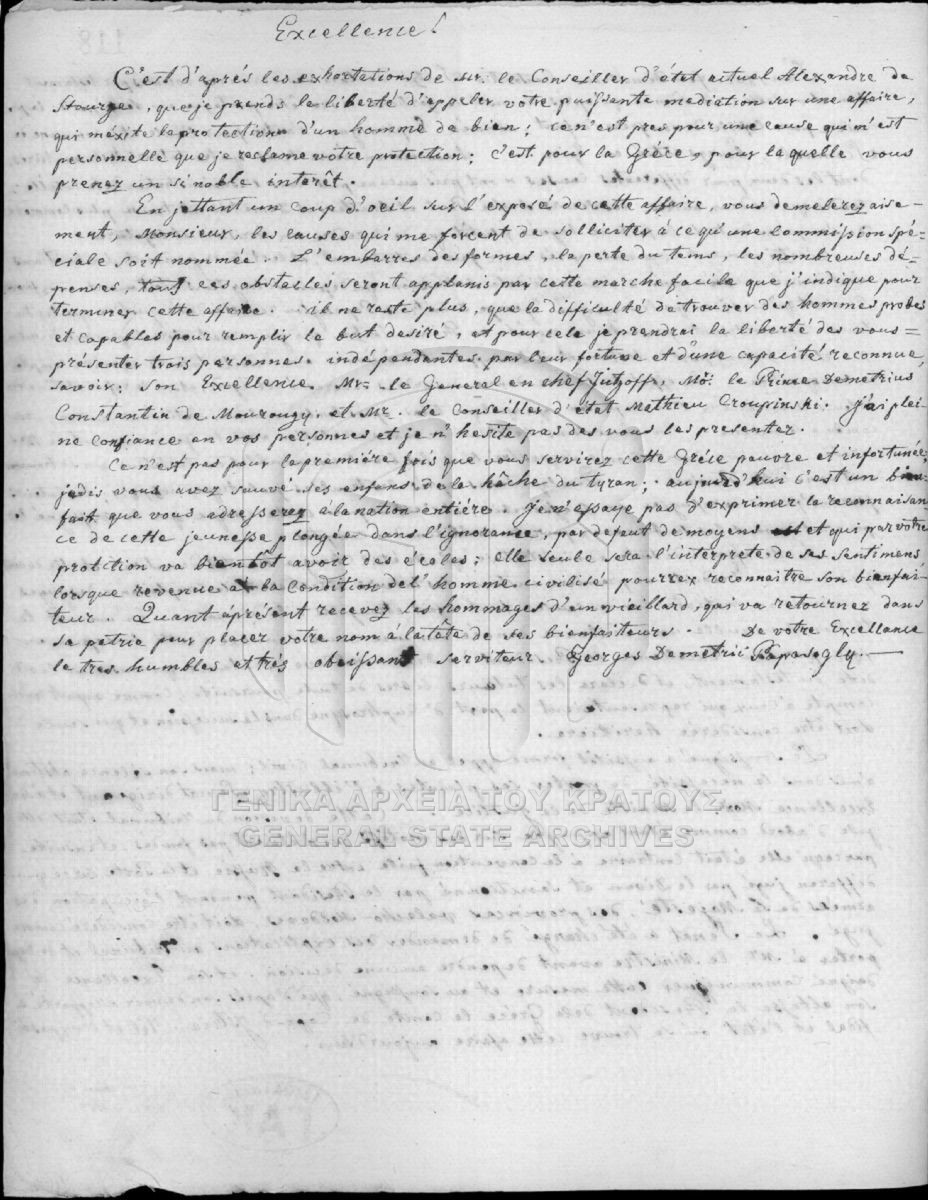 Excellence!
C'est d'aprés les exhortations de Mr. le Conseiller d'état actuel Alexandre de
Stourge, que je prends la liberté d'appeler votre puissante mediation sur une affaire,
qui mérite la protection d'un homme de bien; ce n'est pas pour une cause qui m'est
personnelle que je reclame votre protection; c'est pour la Gréce, pour laquelle vous
prenez un si noble interêt.
En jettant un coup d'oeil sur l'exposé de cette affaire, vous demelerez aise-
ment, Monsieur, les causes qui me forcent de solliciter à ce qu'une Commission spé-
ciale soit nommée. L'embarras des formes, la perte du tems, les nombreuses dé-
penses, tous ces obstacles seront applanis par cette marche facile que j'indique pour
terminer cette affaire. il ne reste plus, que la difficulté de trouver des hommes probes
et capables pour remplir le but desiré, et pour cela je prendrai la liberté des vous=
présenter trois personnes indépendantes par leur fortune et d'une capacité reconnue,
savoir: Son Excellence Mr. le General en chef Jutzoff, Mr. le Prince Demetrius
Constantin de Mourougy, et Mr. le Conseiller d'état Mathieu Croupinski. J'ai plei-
ne confiance en vos personnes et je n'hesite pas des vous les presenter.
Ce n'est pas pour la premiére fois que vous servirez cette Gréce pauvre et infortunée,
jadis vous avez sauvé ses enfans de la hâche du tyran; aujourd'hui c'est un bien-
fait que vous adresserez a la nation entiére. Je n'essaye pas d'exprimer la reconnaisan-
ce de cette jeunesse plongée dans l'ignorance, par defaut de moyens et qui par votre
protction va bientôt avoir des écoles; elle seule sera l'interprete de ses sentimens
lorsque revenue a la Condition de l'homme civilisé pourrex reconnaitre son bienfai-
teur. Quant àprésent recevez les hommages d'un vieillard, qui va retournez dans
sa patrie pour placer votre nom à la tâte de ses bienfaiteurs. De votre Excellance
le tres humbles et trés obeissant serviteur Georges Demetrie Papasogly.
ΓΕΝΙΚΑ ΑΡΧΕΙΑ ΤΟΥ ΚΡΑΤΟΥΣ
GENERAL STATE ARCHIVES